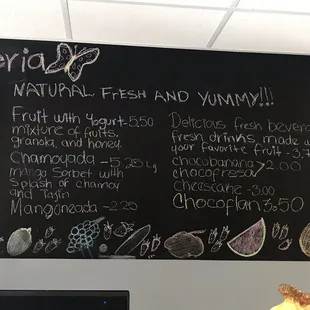 eria
NATURAL FRESH AND YUMMY!!!
Fruit with Yogurt-5.50
mixture of fruits.
granola, and honey.
Chamoyada -5.20 Lg
mango Sorbet with
Splash of chamoy
and Tajin
Mangoneada-- 2.20
Delicious fresh bevera
fresh drinks made
your favorite fruit -3.7
chocobanana
chocofresa > 2.00
cheescake -3.00
Chocoflan 3.50